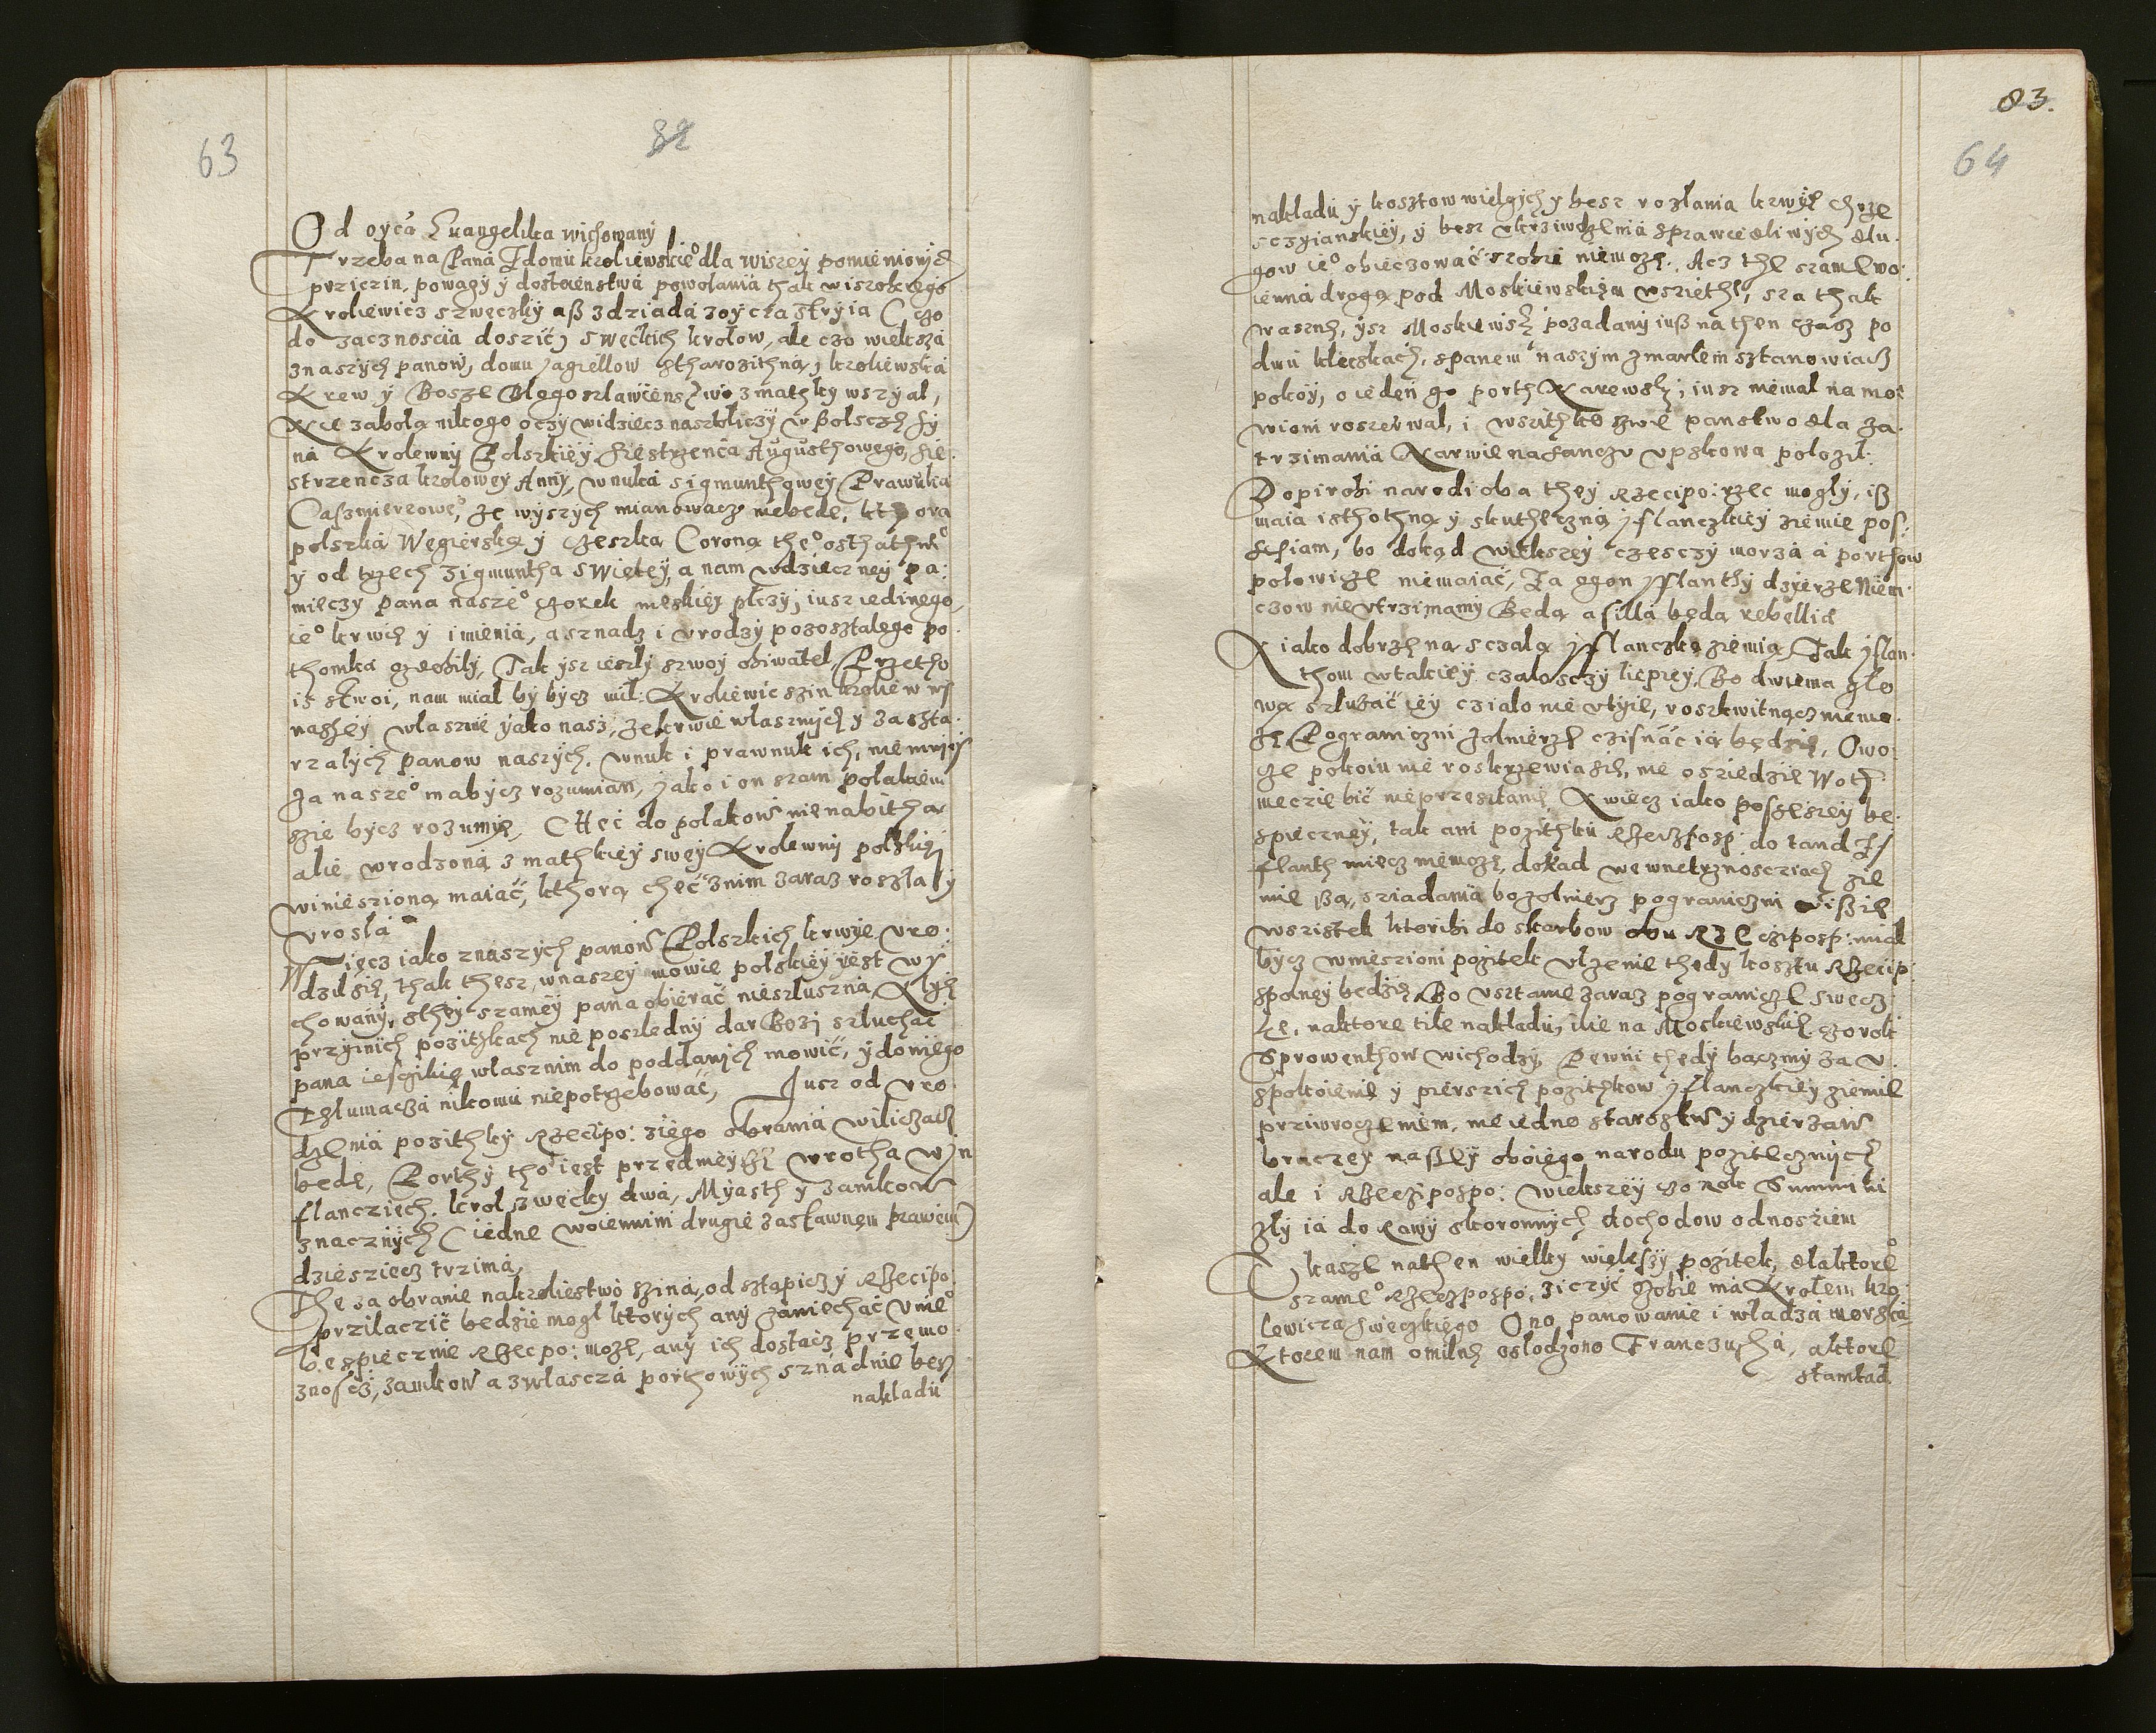 63
82
Od oyca Euangelika wichowany
Trzeba na Pana Z domu kroliewskie° dla wiszey pomienionych
prziczin, powagy ÿ dostoienstwa powolania thak wisokiego
Kroliewicz szweczky aß z dziada z oycza stryia (czo
do zacznoscia dosziċ) sweckich krolow, ale czo wieksza
z naszych panow, domu Jagiellow stharozithna, kroliewska
Krew y Bosze Blogoszlawienstwo z mathky wszyal,
nikogo oczy widziecz na stoliczy w Polscze sy
na Krolewny Polskiey Siestrzenca Augusthowego, sie
strzencza krolowey Anny, wnuka sigmunthowey Prawnuka
Caszmierzowe°, ze wyszych mianowacz niebede, kthora
polszka Wegierska y Czeszka Corona the° osthathnie°
y od trzech Zigmuntha swietey, a nam wdzieczney pa:
mieczy pana nasze° czorek meskiey plczy, iusz iedinego
ie° krwie y imienia, a sznadz i vrodzy pozosztalego po
thomka Tak ysz iesly szwoy obiwatel, Przetho
iż swoi, nam mial by bycz mil: Kroliewic szin kroliewny
naszey wlasznie yako nasz, ze krwie wlasznych y za szta
rzalych panow naszych. wnuk i prawnuk ich, niemniey
Za nasze° ma bycz rozumian, jako i on szam polakiem
szie bycz rozumye, CHeċ do polakow nie nabitha
alie wrodzona z mathkiey swey Krolewny polskiey
winiesziona maiaċ, kthora cheċ z nim zaraz roszla y
vrosla
Wiecz iako z naszych panow Polszkich krwye vro:
dzil sie, thak thesz w naszey mowie polskiey iest wy
chowany, sthey szamey pana obieraċ nieszluszna
przyinich pozithkach nie posledny dar Bozi szluchaċ
pana iesykie wlasznim do poddanych mowiċ, y do niego
Tzlumacza nikomu niepotrzebowaċ, Jusz od vro
dzenia pozithky Rzecipo: ziego obrania wiliczacz
bede, Porthy tho iest przednieysze wrotha w Jn
flancziech. krol szwecky dwa, Myasth y zamkow
znacznych (iedne woiennim drugie zastawnem prawem)
dziesziecz trzima,
The za obranie na kroliestwo szina, od sztapiczy Rzecipo
prziłacziċ bedzie mogl ktorych any zaniechaċ v nie°
bespiecznie Rzecpo: moze, any ich dostacz przemo
znoscz, zamkow a zwlascza porthowych sznadnie besz
nakladu
83.
64
nakladu y kosztow wielgych y besz rozlania krwye chrze
sczyianskiey, y besz vkrziwdzenia sprawiedliwych dlu.
gow ie° obieczowaċ szobie niemoze. Acz the szame wo:
ienna droga pod Moskiewskiem wsziethe, sza thak
wazne, ysz Moskiewsky pozadany iusz na then czasz po
dwu kleskach, spanem naszym zmarlem sztanowiacz
pokoy, o ieden go porth Narewsky, iusz niemal na mo°
wioni roszerwal, i wszithko szwe panstwo dla za.
trzimania Narwie na szanczu vpskowa polozil:
Dopirobi narodi oba they Rzecipo: rzec mogly, iß
maia isthothna y skutheczna yflanczkiey ziemie pos:
sesiam, bo dokad wiekszey czesczy morza a portsow
polowicze niemaiaċ, Za ogon yflanthy dzyerze Niem:
czow nie vtrzimamy Beda a silla beda rebellia
X iako dobrze na sczala yflanczka ziemia, Tak yflan
thom wtakiey czalosczy liepiey, Bo dwiema glo
wa szluzaċ iey czialo nie vtyie, roszkwitnacz niemo
ze Pograniczni zolnierze czisnaċ ia będzie, Owo
ze pokoiu nie roskrzewia sie, nie osziedzie Woth
mecze biċ nieprzestanie A wiecz iako possessiey be
spieczney, tak ani pozithku Rzeczposp: do tand Jf
flanth miecz niemoze, dokad we wnetrznosciach zie
mie sza, sziadania bo zolnierz pograniczni
wszistek ktoribi do skarbow obu Rzecziposp: mial
bycz wnieszioni pozitek vlzenie thedy kosztu Rzecip:
spolney bedzie, Bo vsztanie zaraz pogranicze swecz
kie, na ktore tile nakladu, ile na Moskiewskie czorok
Sprowenthow wichodzy, Pewni thedy baczmy za v:
spokoienie y pierszich pozithkow yflanczkiey ziemie
prziwroczeniem, nie iedno starosztw y dzierzaw
braczey naszey oboiego narodu pozitecznych
ale i Rzeczipospo: wiekszey czorok Summi ni
zly ia do Rawy skoronnych dochodow odnosiem
Okasze nathen wielky wiekszy pozitek, dla ktore°
szame° Rzeczpospo: ziczyċ szobie ma Krolem kro
lewicza sweczkiego Ono panowanie i wladza morska
Ktorem nam omilne oslodzono Franczuza, aktore
stamtad